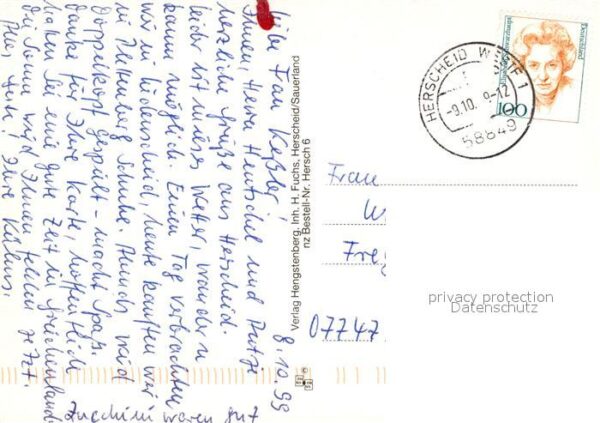 8.10.99
Liebe Frau Keßler!
Ihnen, Herrn Hentschel und Putzi
herzliche Grüße aus Herscheid.
Leider ist mieses Wetter, wandern
kaum möglich. Einen Tag verbrachten
wir in Lüdenscheid, heute kauften wir
in Schuhe. Abends wird
Doppelkopf gespielt - macht Spaß.
Danke für Ihre Karte, hoffentlich
haben Sie eine gute Zeit in Griechenland
die Sonne wird Ihnen fehlen jetzt.
Ihre Kühns.
Zucchini waren gut
Verlag Hengstenberg, Inh. H. Fuchs, Herscheid/Sauerland
nz Bestell-Nr. Hersch 6
HERSCHEID WESTF 1
-9.10. 9-12
58849
Deutschland
100
Frau
W
Fre
07747
privacy protection
Datenschutz